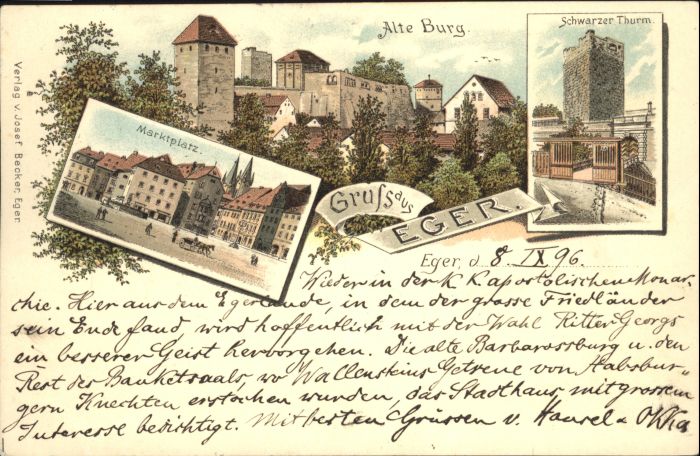 Alte Burg.
Schwarzer Thurm.
Marktplatz.
Verlag v. Josef Becker, Eger.
Gruss aus
EGER.
Eger, d 8. IX 96.
Wieder in der K Kapostolischen Monar-
chie. Hier aus dem Egerlande, in dem der grosse Friedländer
sein Ende fand, wird hoffentlich mit der Wahl Ritter Georgs
ein besserer Geist hervorgehen. Die alte Barbarossburg u. den
Rest des Banketsaals, wo Wallensteins Getreue von Habsbur-
gern Knechten erstochen wurden, das Stadthaus, mit grossem
Interesse besichtigt. Mit besten Grüssen v. Hansel &